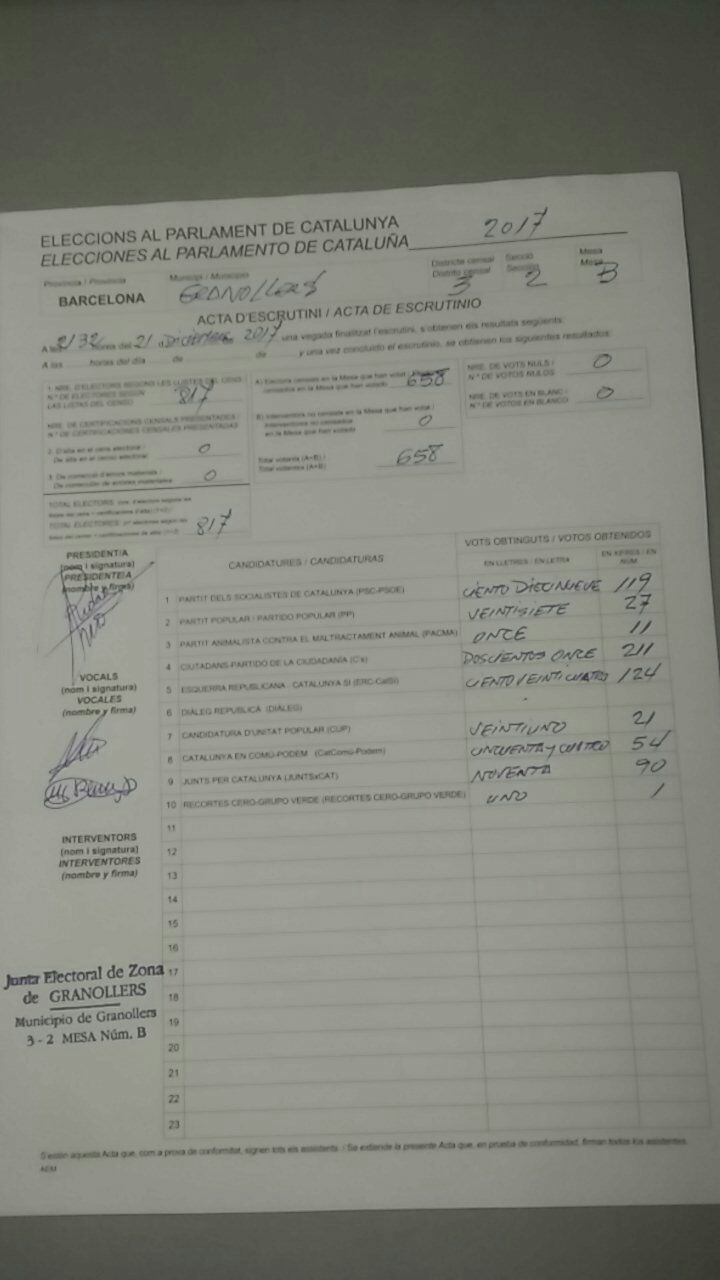 ELECCIONS AL PARLAMENT DE CATALUNYA
ELECCIONES AL PARLAMENTO DE CATALUÑA 2017
Província / Provincia
BARCELONA
Municipi / Municipio
GRANOLLERS
Districte censal
Distrito censal 3
Secció
Sección 2
Mesa
Mesa B
ACTA D'ESCRUTINI / ACTA DE ESCRUTINIO
A les hores del 21 Diciembre 2017 una vegada finalitzat l'escrutini, s'obtenen els resultats següents:
A las horas del día de de y una vez concluido el escrutinio, se obtienen los siguientes resultados:
1. NRE. D'ELECTORS SEGONS LES LLISTES DEL CENS
N.º DE ELECTORES SEGÚN
LAS LISTAS DEL CENSO 817
NRE. DE CERTIFICACIONS CENSALS PRESENTADES /
N.º DE CERTIFICACIONES CENSALES PRESENTADAS
2. D'alta en el cens electoral /
De alta en el censo electoral 0
3. De correcció d'errors materials /
De corrección de errores materiales 0
TOTAL ELECTORS:
TOTAL ELECTORES: 817
A) Electors censats en la Mesa que han votat /
censados en la Mesa que han votado 658
B) Interventors no censats en la Mesa que han votat /
Interventores no censados
en la Mesa que han votado 0
Total votants (A+B) /
Total votantes (A+B) 658
NRE. DE VOTS NULS /
N.º DE VOTOS NULOS 0
NRE. DE VOTS EN BLANC /
N.º DE VOTOS EN BLANCO 0
PRESIDENT/A
(nom i signatura)
PRESIDENTE/A
(nombre y firma)
VOCALS
(nom i signatura)
VOCALES
(nombre y firma)
INTERVENTORS
(nom i signatura)
INTERVENTORES
(nombre y firma)
Junta Electoral de Zona
de GRANOLLERS
Municipio de Granollers
3 - 2 MESA Núm. B
CANDIDATURES / CANDIDATURAS
VOTS OBTINGUTS / VOTOS OBTENIDOS
EN LLETRES / EN LETRA
EN XIFRES / EN NÚM.
1 PARTIT DELS SOCIALISTES DE CATALUNYA (PSC-PSOE) CIENTO DIECINUEVE 119
2 PARTIT POPULAR / PARTIDO POPULAR (PP) VEINTISIETE 27
3 PARTIT ANIMALISTA CONTRA EL MALTRACTAMENT ANIMAL (PACMA) ONCE 11
4 CIUTADANS-PARTIDO DE LA CIUDADANÍA (C's) DOSCIENTOS ONCE 211
5 ESQUERRA REPUBLICANA - CATALUNYA SÍ (ERC-CatSí) CIENTO VEINTICUATRO 124
6 DIÀLEG REPUBLICÀ (DIÀLEG)
7 CANDIDATURA D'UNITAT POPULAR (CUP) VEINTIUNO 21
8 CATALUNYA EN COMÚ-PODEM (CatComú-Podem) CINCUENTA y CUATRO 54
9 JUNTS PER CATALUNYA (JUNTSxCAT) NOVENTA 90
10 RECORTES CERO-GRUPO VERDE (RECORTES CERO-GRUPO VERDE) UNO 1
11
12
13
14
15
16
17
18
19
20
21
22
23
S'estén aquesta Acta que, com a prova de conformitat, signen tots els assistents. / Se extiende la presente Acta que, en prueba de conformidad, firman todos los asistentes.